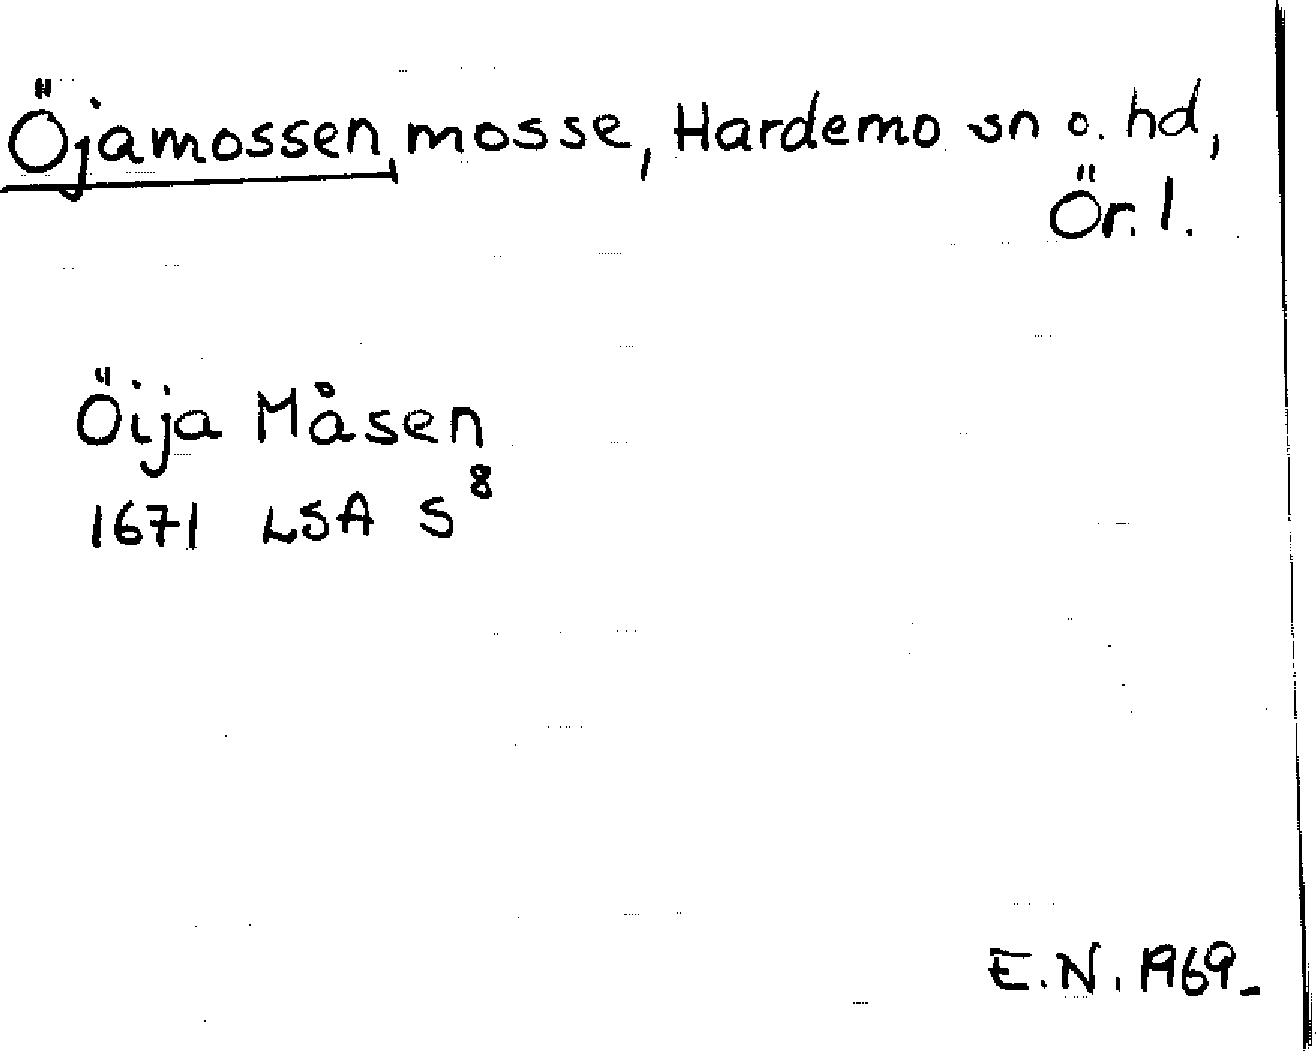 Öjamossen, mosse, Hardemo sn o. hd,
Ör. l.
Öija Måsen
1671 LSA S⁸
E.N. 1969